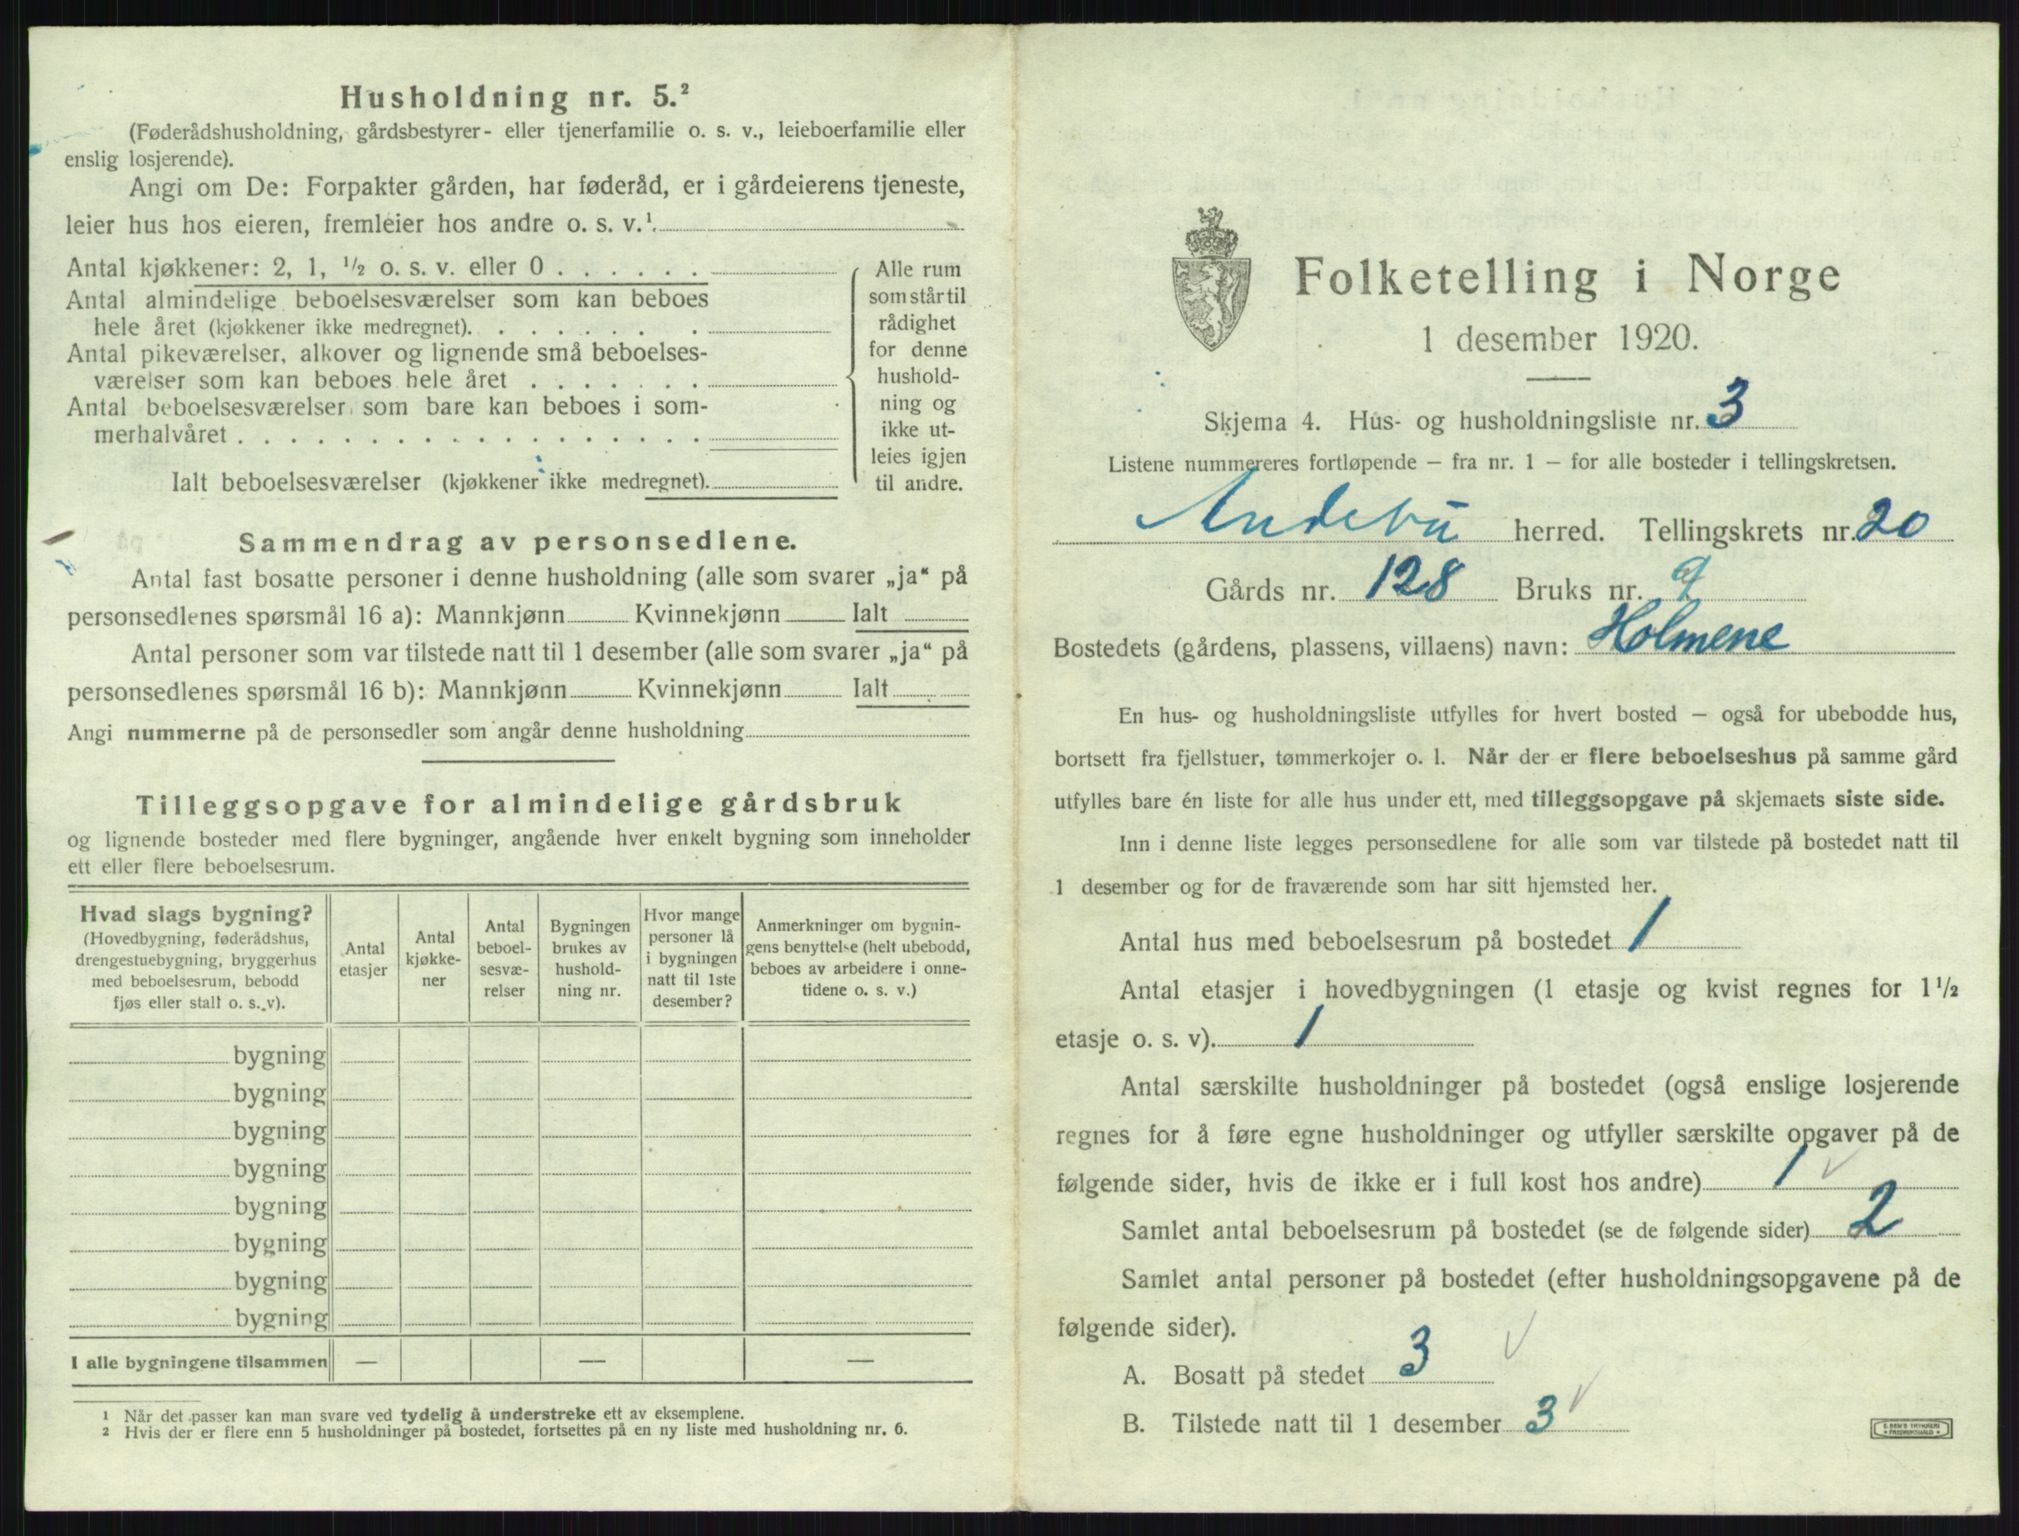 Husholdning nr. 5.²
(Føderådshusholdning, gårdsbestyrer- eller tjenerfamilie o. s. v., leieboerfamilie eller
enslig losjerende).
Angi om De: Forpakter gården, har føderåd, er i gårdeierens tjeneste,
leier hus hos eieren, fremleier hos andre o. s. v.¹.
Antal kjøkkener: 2, 1, ½ o. s. v. eller 0 . . . . . .
Antal almindelige beboelsesværelser som kan beboes
hele året (kjøkkener ikke medregnet). . . . . . . . .
Antal pikeværelser, alkover og lignende små beboelses-
værelser som kan beboes hele året . . . . . . .
Antal beboelsesværelser som bare kan beboes i som-
merhalvåret . . . . . . . . . . . . . . . . . .
Ialt beboelsesværelser (kjøkkener ikke medregnet).
Alle rum
som står til
rådighet
for denne
hushold-
ning og
ikke ut-
leies igjen
til andre.
Sammendrag av personsedlene.
Antal fast bosatte personer i denne husholdning (alle som svarer „ja“ på
personsedlenes spørsmål 16 a): Mannkjønn Kvinnekjønn Ialt
Antal personer som var tilstede natt til 1 desember (alle som svarer „ja“ på
personsedlenes spørsmål 16 b): Mannkjønn Kvinnekjønn Ialt
Angi nummerne på de personsedler som angår denne husholdning
Tilleggsopgave for almindelige gårdsbruk
og lignende bosteder med flere bygninger, angående hver enkelt bygning som inneholder
ett eller flere beboelsesrum.
Hvad slags bygning?
(Hovedbygning, føderådshus,
drengestuebygning, bryggerhus
med beboelsesrum, bebodd
fjøs eller stall o. s. v).
Antal
etasjer
Antal
kjøkke-
ner
Antal
beboel-
sesvæ-
relser
Bygningen
brukes av
hushold-
ning nr.
Hvor mange
personer lå
i bygningen
natt til 1ste
desember?
Anmerkninger om bygnin-
gens benyttelse (helt ubebodd,
beboes av arbeidere i onne-
tidene o. s. v.)
bygning
bygning
bygning
bygning
bygning
bygning
bygning
bygning
I alle bygningene tilsammen — — —
¹ Når det passer kan man svare ved tydelig å understreke ett av eksemplene.
² Hvis der er flere enn 5 husholdninger på bostedet, fortsettes på en ny liste med husholdning nr. 6.
Folketelling i Norge
1 desember 1920.
Skjema 4. Hus- og husholdningsliste nr. 3
Listene nummereres fortløpende — fra nr. 1 — for alle bosteder i tellingskretsen.
Andebu herred. Tellingskrets nr. 20
Gårds nr. 128 Bruks nr. 9
Bostedets (gårdens, plassens, villaens) navn: Holmene
En hus- og husholdningsliste utfylles for hvert bosted — også for ubebodde hus,
bortsett fra fjellstuer, tømmerkojer o. l. Når der er flere beboelseshus på samme gård
utfylles bare én liste for alle hus under ett, med tilleggsopgave på skjemaets siste side.
Inn i denne liste legges personsedlene for alle som var tilstede på bostedet natt til
1 desember og for de fraværende som har sitt hjemsted her.
Antal hus med beboelsesrum på bostedet 1
Antal etasjer i hovedbygningen (1 etasje og kvist regnes for 1½
etasje o. s. v). 1
Antal særskilte husholdninger på bostedet (også enslige losjerende
regnes for å føre egne husholdninger og utfyller særskilte opgaver på de
følgende sider, hvis de ikke er i full kost hos andre) 1
Samlet antal beboelsesrum på bostedet (se de følgende sider) 2
Samlet antal personer på bostedet (efter husholdningsopgavene på de
følgende sider).
A. Bosatt på stedet 3
B. Tilstede natt til 1 desember 3